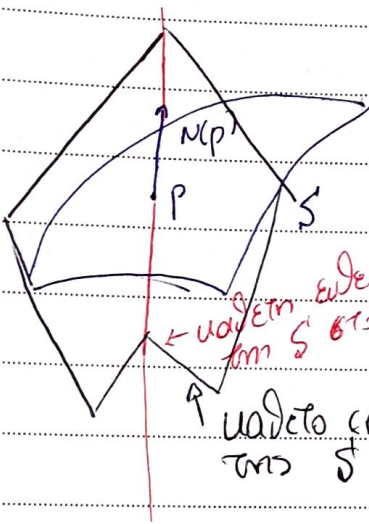 N(p)
P
S
← κάθετη ευθε
της S στ
κάθετο
της S